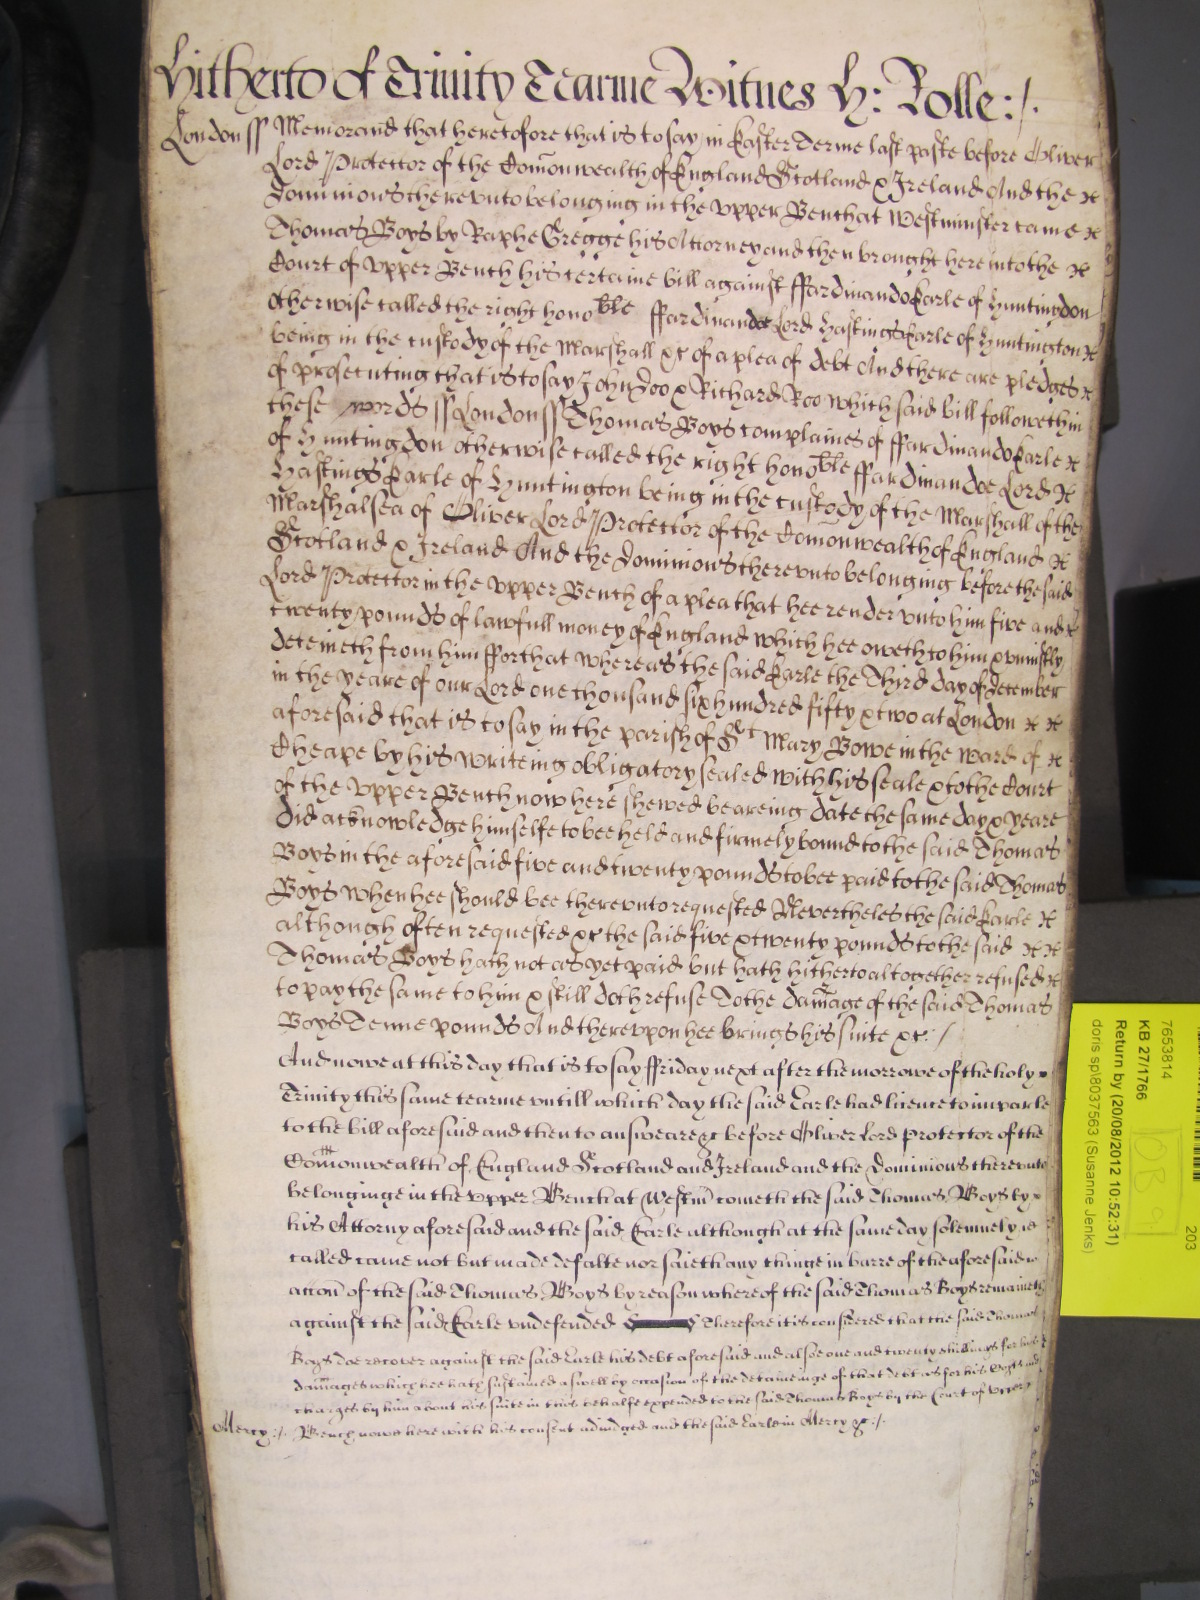 Hitherto of Trinity Tearme Witnes H: Rolle:/.
London ss Memorand that heretofore that is to say in Easter Terme last paste before Oliver
Lord Protector of the Comonwealth of England Scotland & Ireland And the
Dominions therevnto belonging in the vpper Bench at Westminster came
Thomas Boys by Raphe Gregge his Attorney and then brought here into the
Court of vpper Bench his certaine bill against Ffardinando Earle of Huntingdon
otherwise called the right hono ble Ffardinandoe Lord Hastings Earle of Huntington
being in the custody of the Marshall &c of a plea of debt And there are pledges
of prosecuting that is to say John Doo & Richard Roo which said bill followeth in
these words ss London ss Thomas Boys complaines of Ffardinando Earle
of Huntingdon otherwise called the right hono ble Ffardinandoe Lord
Hastings Earle of Huntington being in the custody of the Marshall of the
Marshalsea of Oliver Lord Protector of the Comonwealth of England
Scotland & Ireland And the Dominions therevnto belonging before the said
Lord Protector in the vpper Bench of a plea that hee render vnto him five and
twenty pounds of lawfull money of England which hee oweth to him & vniustly
deteineth from him Ffor that whereas the said Earle the Third day of December
in the yeare of our Lord one thousand six hundred fifty & two at London
aforesaid that is to say in the parish of Sct Mary Bowe in the ward of
Cheape by his writeing obligatory sealed with his seale & to the Court
of the vpper Bench now here shewed beareing date the same day & yeare
did acknowledge himselfe to bee held and firmely bound to the said Thomas
Boys in the aforesaid five and twenty pounds to bee paid to the said Thomas
Boys when hee should bee therevnto requested Nevertheles the said Earle
although often requested &c the said five & twenty pounds to the said
Thomas Boys hath not as yet paid but hath hitherto altogether refused
to pay the same to him & still doth refuse To the damage of the said Thomas
Boys Tenne pounds And therevpon hee brings his suite &c:/
And nowe at this day that is to say Ffriday next after the morrowe of the holy
Trinity this same tearme vntill which day the said Earle had licence to imparle
to the bill aforesaid and then to answeare &c before Oliver Lord Protector of the
Comonwealth of England Scotland and Ireland and the Dominions therevnto
belonginge in the vpper Bench at Westm cometh the said Thomas Boys by
his Attorny aforesaid and the said Earle although at the same day solemnely
called came not but made defalte nor saieth any thinge in barre of the aforesaid
accon of the said Thomas Boys by reason whereof the said Thomas Boys remaineth
against the said Earle vndefended Therefore it is considered that the said Thomas
Boys doe recover against the said Earle his debt aforesaid and alsoe one and twenty shillings for his
damages which hee hath sustained aswell by occasion of the detaineinge of that debt as for his Costs and
charges by him about his suite in this behalfe expended to the said Thomas Boys by the Court of vpper
Mercy:/. Bench nowe here with his consent adiudged and the said Earle in Mercy &c:/.
7653814
203
KB 27/1766
Return by (20/08/2012 10:52:31)
doris sp\8037563 (Susanne Jenks)